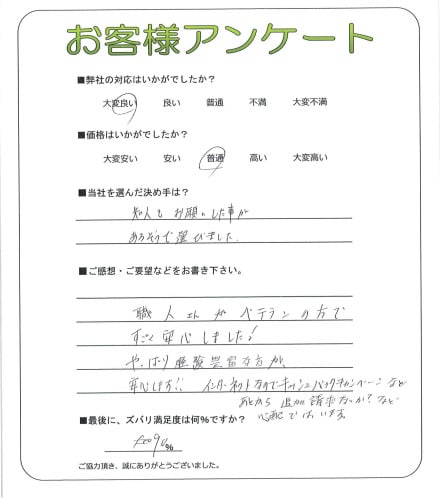 お客様アンケート
■弊社の対応はいかがでしたか?
大変良い 良い 普通 不満 大変不満
■価格はいかがでしたか?
大変安い 安い 普通 高い 大変高い
■当社を選んだ決め手は?
知人もお願いした事が
あるそうで選びました。
■ご感想・ご要望などをお書き下さい。
職人さんがベテランの方で
すごく安心しました!
やっぱり経験豊富な方が、
安心します!! インターネットなのでキャッシュバックキャンペーンなど
あとから追加請求ないか?など
心配ではいます
■最後に、ズバリ満足度は何%ですか?
%
ご協力頂き、誠にありがとうございました。